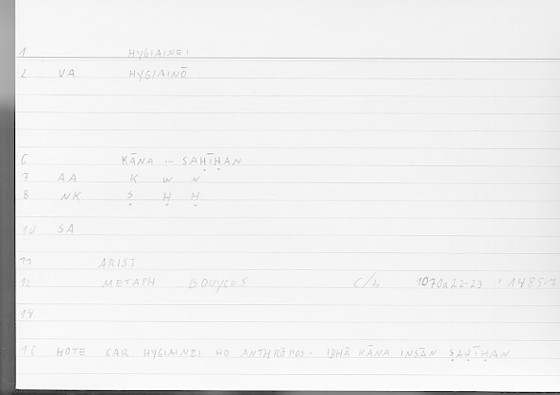 1 HYGIAINEI
2 VA HYGIAINŌ
6 KĀNA — SAḤĪḤAN
7 AA K W N
8 NK Ṣ Ḥ Ḥ
10 SA
11 ARIST
12 METAPH BOUYGES C/L 1070a22-23
14
16 HOTE GAR HYGIAINEI HO ANTHRŌPOS · IDHĀ KĀNA INSĀN ṢAḤĪḤAN